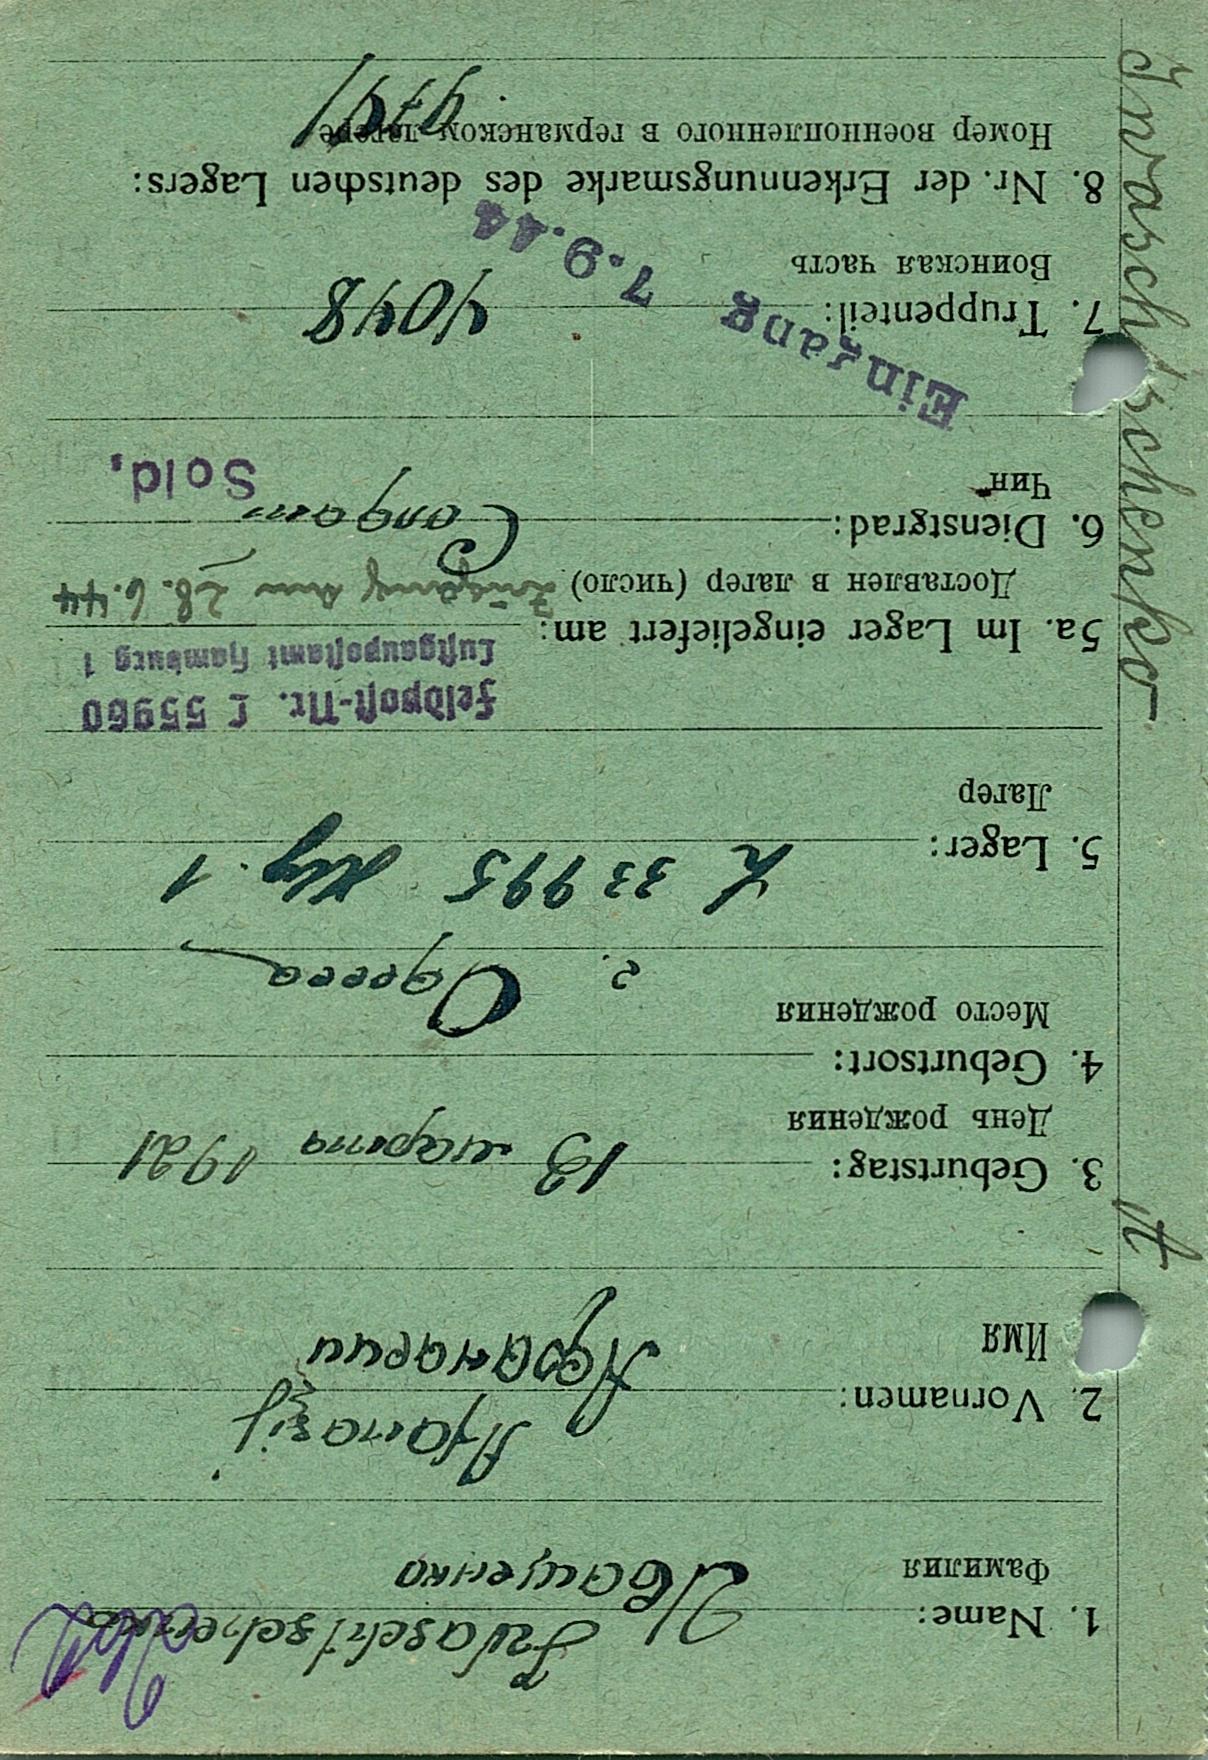 Iwaschtschenko
1. Name: Иващенко
Фамилия
Afanasij
2. Vornamen: Афанасий
Имя
3. Geburtstag: 13 марта 1921
День рождения
4. Geburtsort:
Место рождения
г. Одесса
5. Lager: L 33995 Hbg. 1
Лагер
Feldpost-Nr. L 55960
Luftgaupostamt Hamburg 1
5a. Im Lager eingeliefert am:
Доставлен в лагер (число) Zugang am 28.6.44
6. Dienstgrad: Солдат Sold.
Чин
Eingang 7.9.44
7. Truppenteil: 4048
Воинская часть
8. Nr. der Erkennungsmarke des deutschen Lagers:
Номер военнопленного в германском лагере
Iwaschtschenko
A